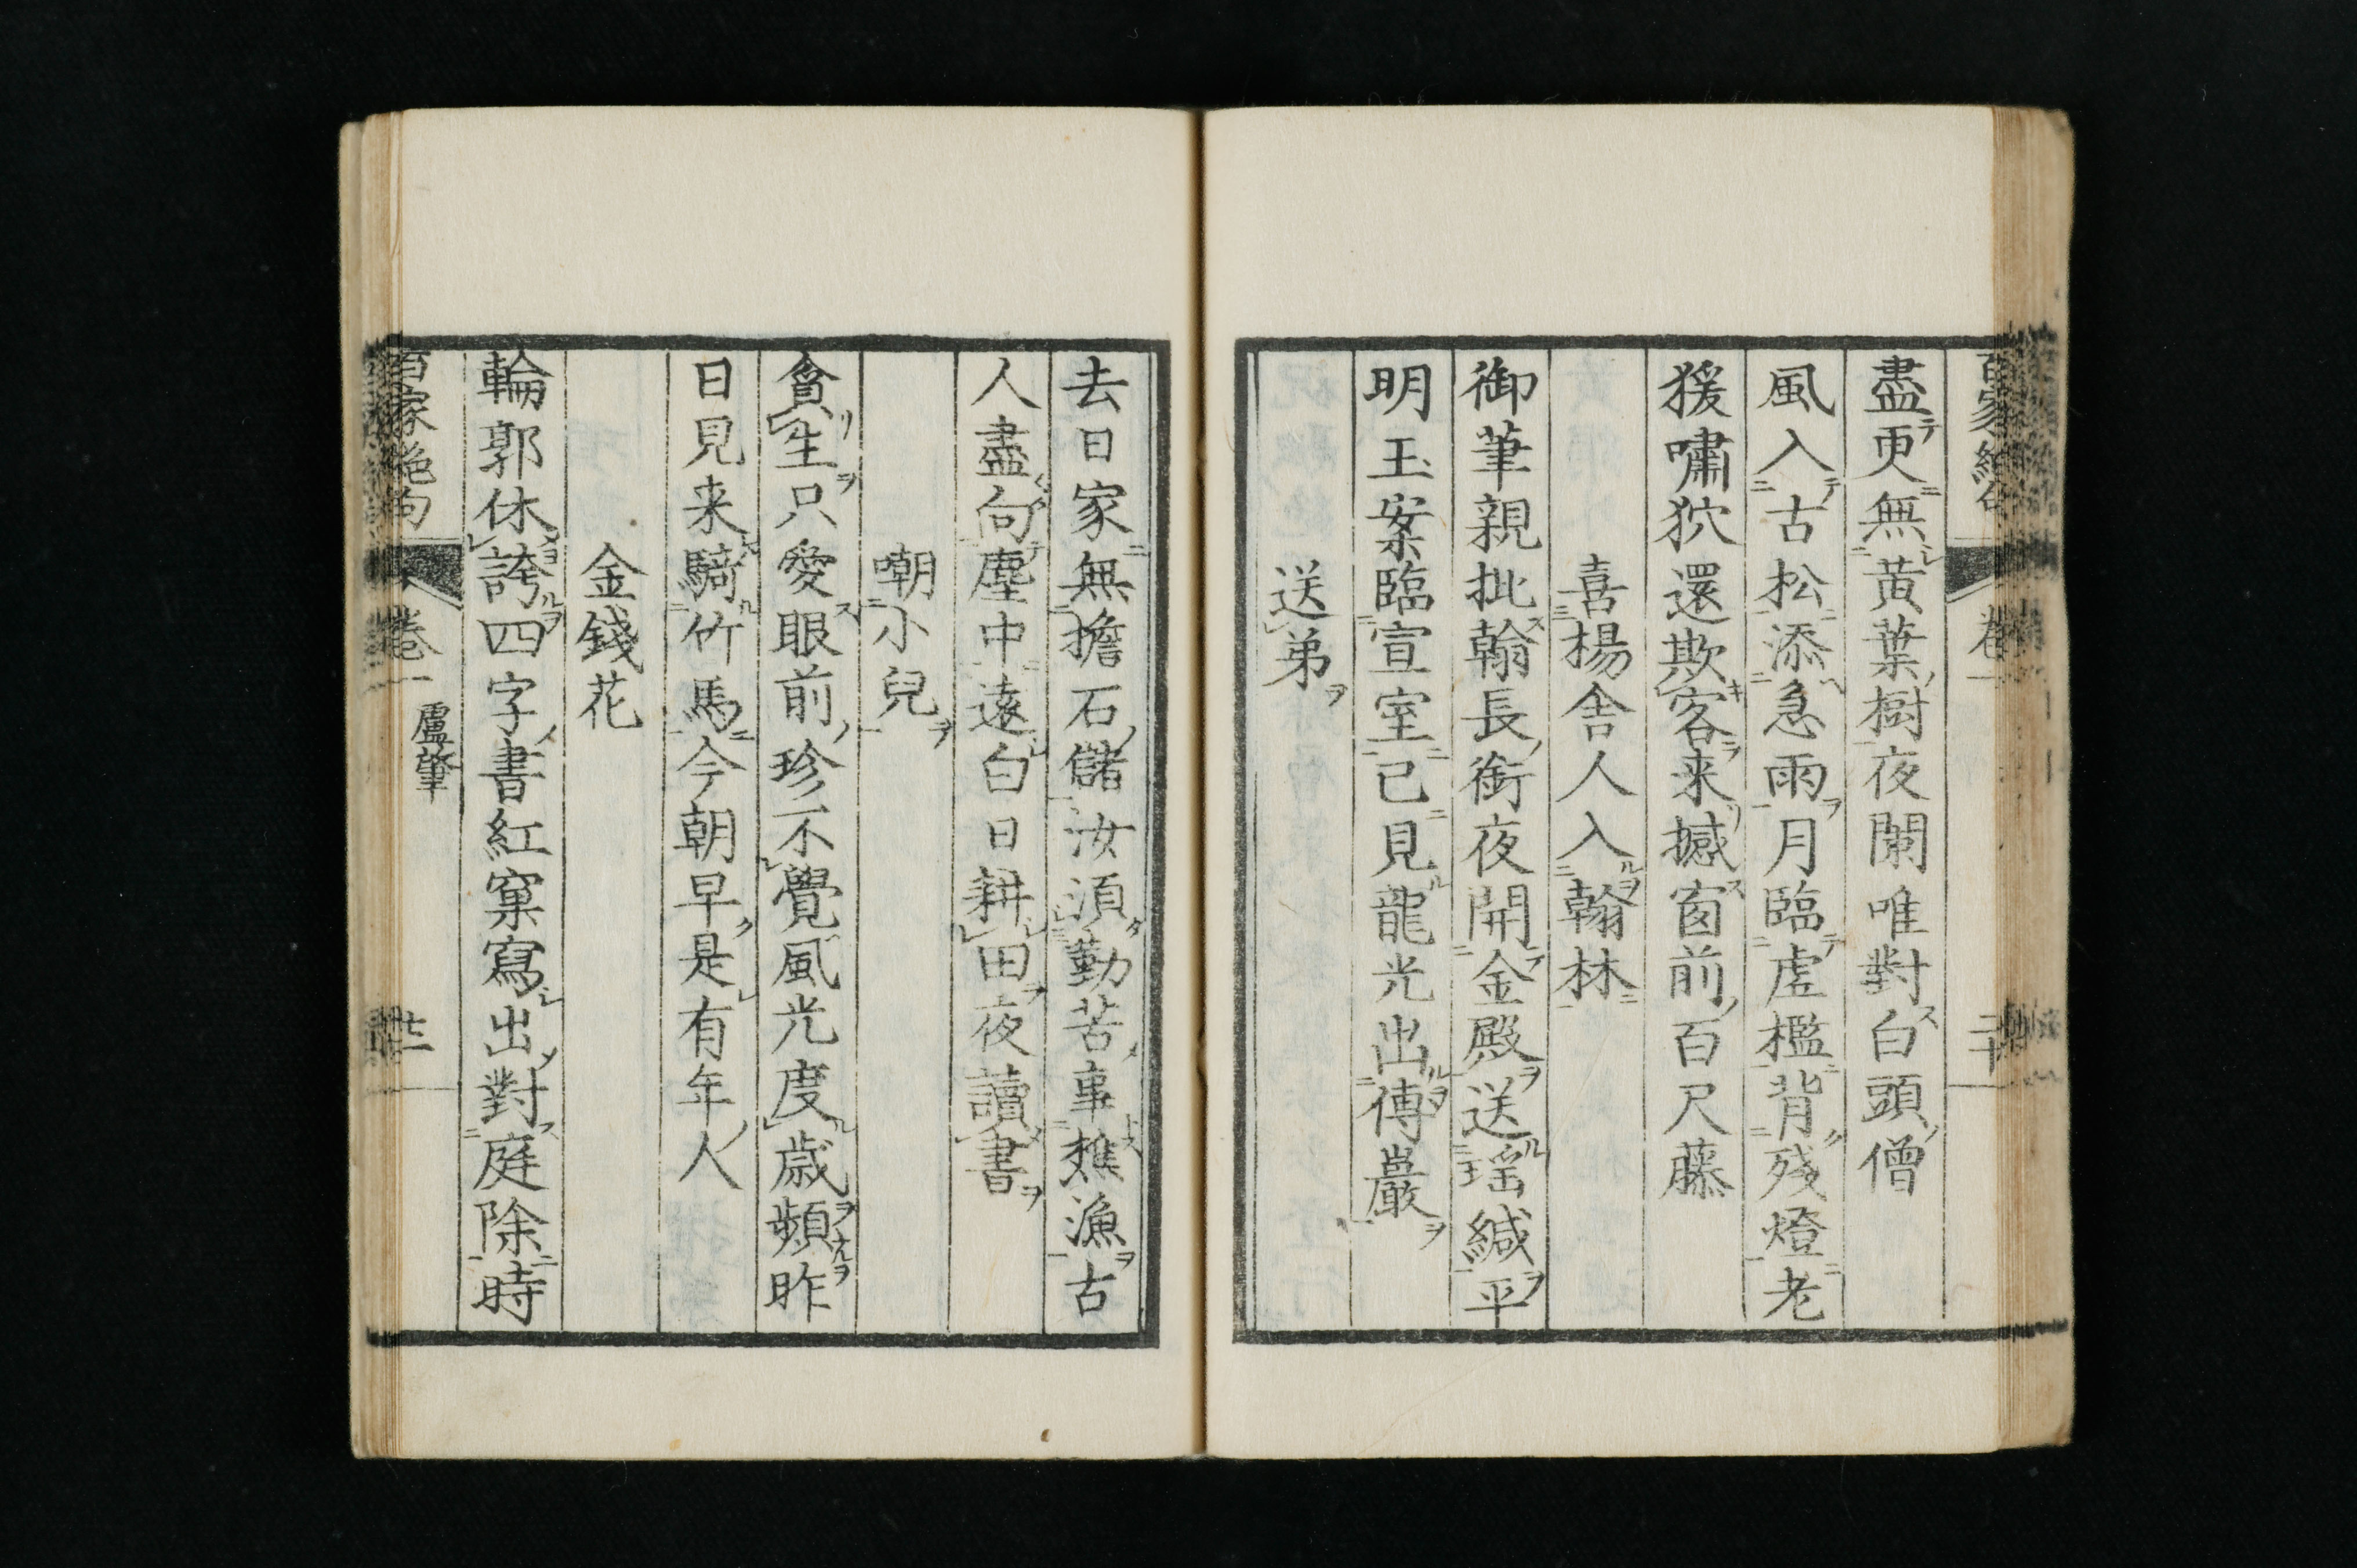 盡更無黄葉樹夜闌唯對白頭僧
風入古松添急雨月臨虚檻背殘燈老
猨嘯狖還欺客来撼窗前百尺藤
喜楊舎人入翰林
御筆親批翰長銜夜開金殿送瑶緘平
明玉案臨宣室已見龍光出傅巖
送弟
去日家無擔石儲汝須勤苦事樵漁古
人盡向塵中遠白日耕田夜讀書
嘲小兒
貪生只愛眼前珍不覺風光度歳頻昨
日見来騎竹馬今朝早是有年人
金錢花
輪郭休誇四字書紅窠寫出對庭除時
百家絶句
卷一
盧肇